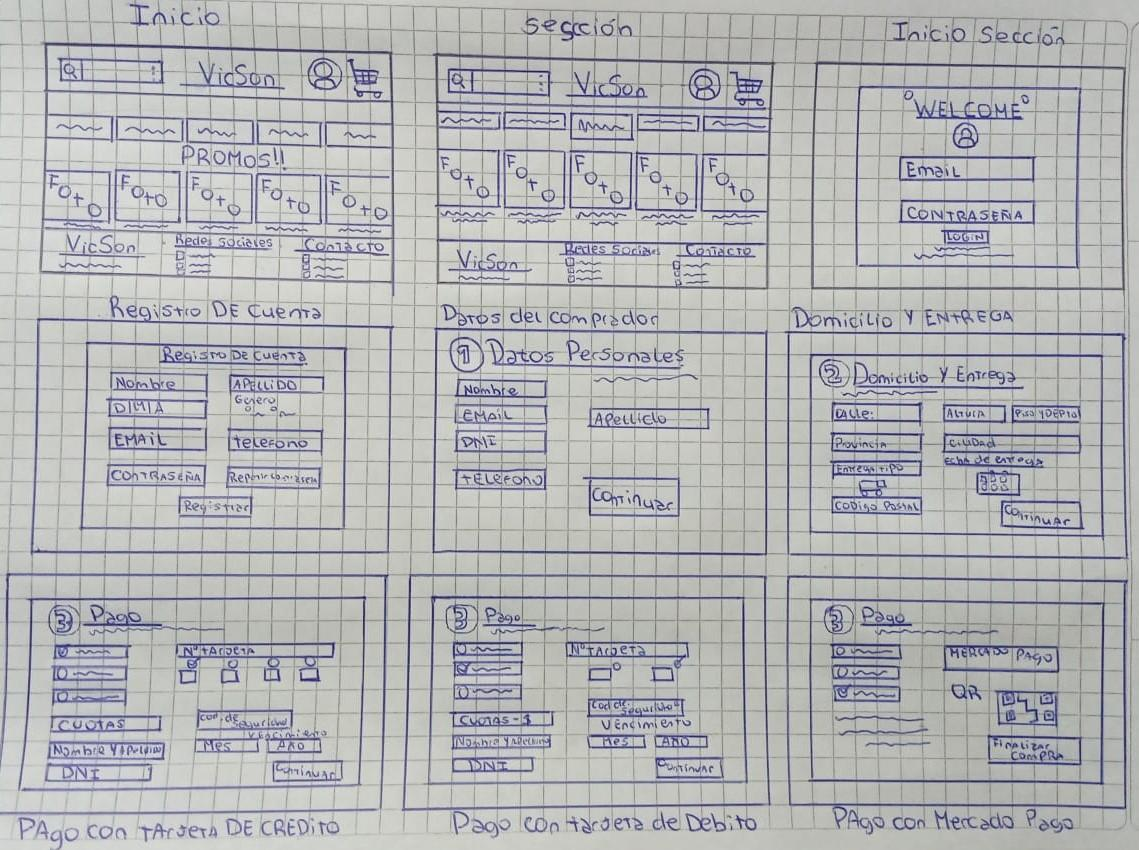 Inicio
VicSon
PROMOS!!
FOTO FOTO FOTO FOTO FOTO
VicSon
Redes Sociales
Contacto
Segción
VicSon
FOTO FOTO FOTO FOTO FOTO
VicSon
Redes Sociales
Contacto
Inicio Sección
WELCOME
Email
CONTRASEÑA
LOGIN
Registro DE Cuenta
Registro De Cuenta
Nombre
APELLIDO
EMAIL
Telefono
CONTRASEÑA
Registrar
Datos del comprador
1 Datos Personales
Nombre
EMAIL
Apellido
DNI
TELEFONO
Continuar
Domicilio Y ENTREGA
2 Domicilio Y Entrega
Calle:
Altura
Piso Y DEPTO
Provincia
Ciudad
Entrega TIPO
CODIGO POSTAL
Continuar
3 Pago
Nº TARJETA
CUOTAS
Cod. de Seguridad
Vencimiento
Nombre Y Apellido
Mes
AÑO
DNI
Continuar
PAgo con TArjeTA DE CREDITO
3 Pago
Nº TARJETA
Cod. de Seguridad
CUOTAS-1
Vencimiento
Nombre Y Apellido
Mes
AÑO
DNI
Continuar
Pago con tarjeta de Debito
3 Pago
MERCADO PAGO
QR
Finalizar
COMPRA
PAgo con Mercado Pago